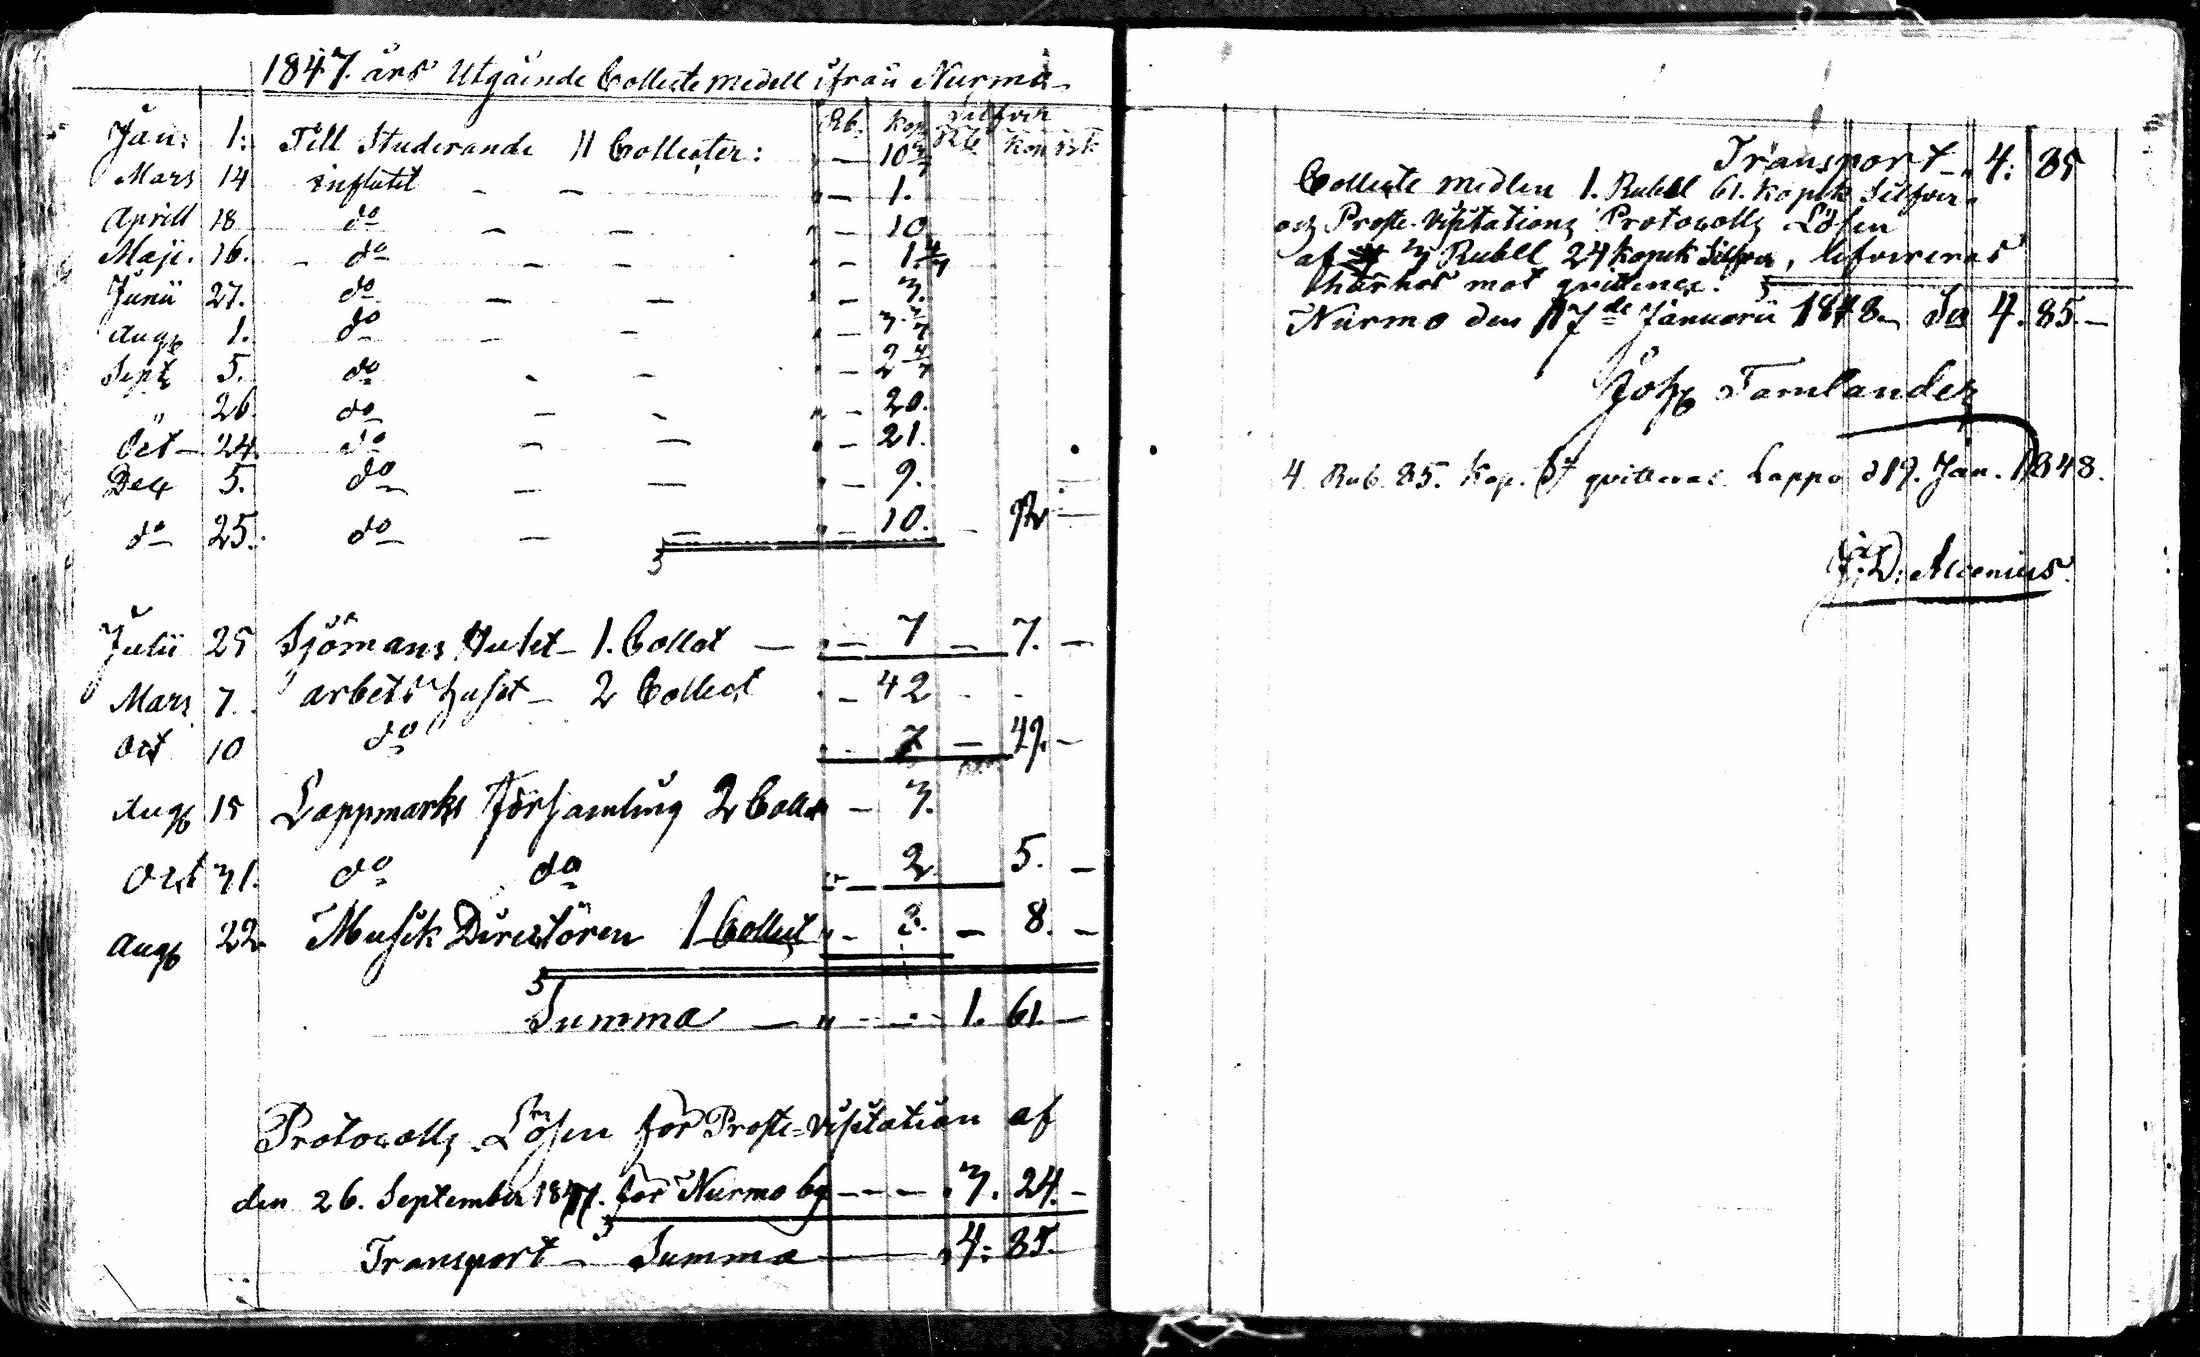 1847. års Utgående Collecte medell ifrån Nurmo
Rb. kop Silfver Rb kop
Jan: 1. Till Studerande 11 Collecter: " — 10
Mars 14 influtit — — " — 1.
Aprill 18 do — — " — 10
Maji. 16. do — — " — 1.
Junii 27. do — — " — 3.
Aug 1. do — — " — 3.
Sept 5. do — — " — 2
" 26. do — — " — 20.
Oct — 24. do — — " — 21.
Dec 5. do — — " — 9.
do 25. do — — " — 10. — 92 —
Julii 25 Sjömans Huset — 1. Collect — " — 7 — 7. —
Mars 7. arbets huset — 2 Collect " — 42 - -
Oct 10 do " — 7 — 49. —
Aug 15 Lappmarks Församling 2 Collec — 3.
Oct 31. do do " — 2 5. —
Aug 22 Musik Directören 1 Collect " — 8. — 8. —
Summa — " — — 1. 61. —
Protocolls Lösen för Proste-Visitation af
den 26. September 1847. för Nurmo by — — — 3. 24. —
Transport — Summa — " 4: 85.
Transport — " 4: 85
Collecte medlen 1. Rubel 61. kopek Silfver
och Proste-Visitations Protocolls Lösen
af 3 Rubel 24 kopek Silfver, lefvereras
härhos mot qvittence.
Nurmo den 17de Januarii 1848. Sa 4. 85. —
Joh Tamlander
4. Rub. 85. Kop. Sr qvitteras. Lappo d 19. Jan. 1848.
J. D. Alcenius.